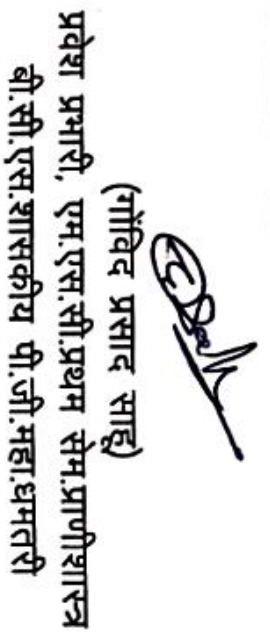 (गोविंद प्रसाद साहू)
प्रवेश प्रभारी, एम.एस.सी.प्रथम सेम.प्राणीशास्त्र
बी.सी.एस.शासकीय पी.जी.महा.धमतरी